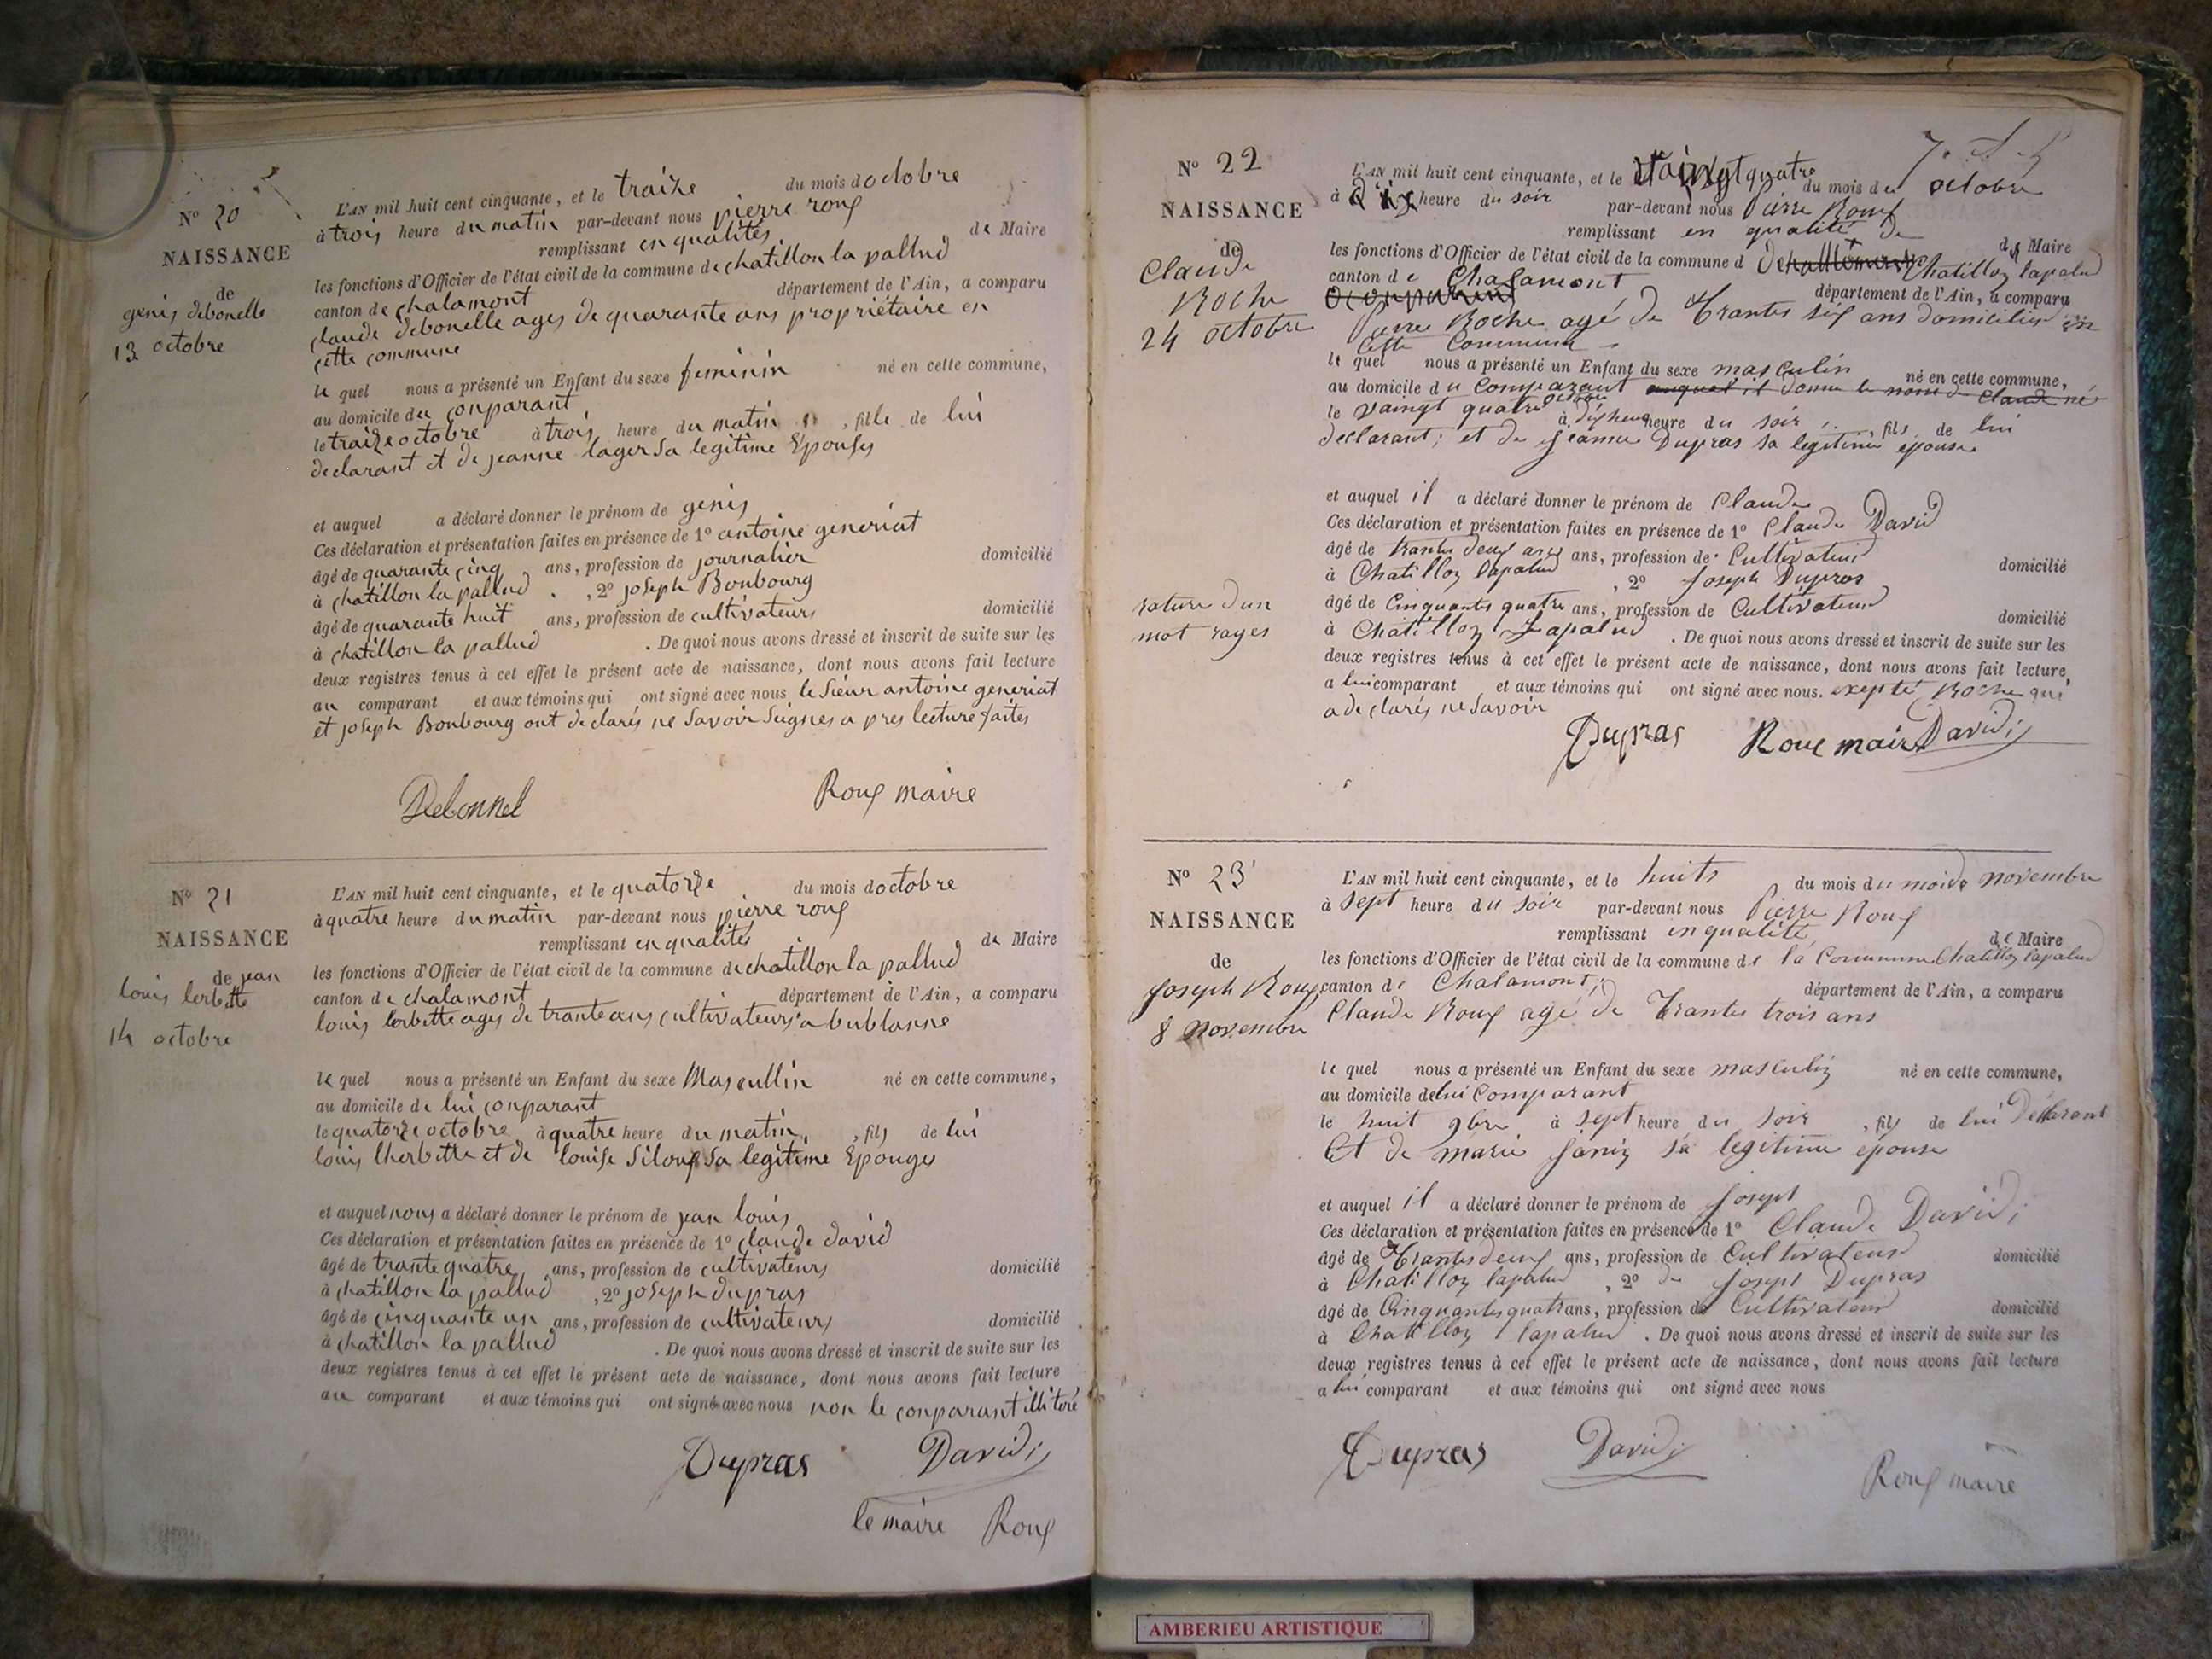 N° 20
NAISSANCE
de
genis debonelle
13 octobre
L'AN mil huit cent cinquante, et le traize du mois d octobre
à trois heure du matin par-devant nous pierre roux
remplissant en qualités de Maire
les fonctions d'Officier de l'état civil de la commune de chatillon la pallud
canton de chalamont département de l'Ain, a comparu
claude debonelle ages de quarante ans propriétaire en
cette commune
le quel nous a présenté un Enfant du sexe feminin né en cette commune,
au domicile du conparant
le traize octobre à trois heure du matin, fille de lui
declarant et de jeanne lager sa legitime Epouses
et auquel a déclaré donner le prénom de genis
Ces déclaration et présentation faites en présence de 1° antoine generiat
âgé de quarante cinq ans, profession de journalier domicilié
à chatillon la pallud, 2° joseph Bonbourg
âgé de quarante huit ans, profession de cultivateurs domicilié
à chatillon la pallud. De quoi nous avons dressé et inscrit de suite sur les
deux registres tenus à cet effet le présent acte de naissance, dont nous avons fait lecture
au comparant et aux témoins qui ont signé avec nous le sieur antoine generiat
et joseph Bonbourg ont declarés ne savoir seignes a pres lecture faites
Debonnel Roux maire
N° 21
NAISSANCE
de jean
louis lerbette
14 octobre
L'AN mil huit cent cinquante, et le quatorze du mois d octobre
à quatre heure du matin par-devant nous pierre roux
remplissant en qualités de Maire
les fonctions d'Officier de l'état civil de la commune de chatillon la pallud
canton de chalamont département de l'Ain, a comparu
louis lerbette ages de trante ans cultivateurs a bublanne
le quel nous a présenté un Enfant du sexe Masculin né en cette commune,
au domicile de lui conparant
le quatorze octobre à quatre heure du matin, fils de lui
louis lherbette et de louise siloux sa legitime Epouges
et auquel nous a déclaré donner le prénom de jean louis
Ces déclaration et présentation faites en présence de 1° claude david
âgé de trante quatre ans, profession de cultivateurs domicilié
à chatillon la pallud, 2° joseph dupras
âgé de cinquante un ans, profession de cultivateurs domicilié
à chatillon la pallud. De quoi nous avons dressé et inscrit de suite sur les
deux registres tenus à cet effet le présent acte de naissance, dont nous avons fait lecture
au comparant et aux témoins qui ont signé avec nous non le conparant illitéré
Dupras David
le maire Roux
N° 22
NAISSANCE
de
Claude
Roche
24 octobre
rature dun
mot rayes
L'AN mil huit cent cinquante, et le vaingt quatre du mois de octobre
à dix heure du soir par-devant nous Pierre Roux
remplissant en qualité de de Maire
les fonctions d'Officier de l'état civil de la commune d Chatillon lapalud
canton de Chalamont département de l'Ain, a comparu
Pierre Roche agé de Trantes six ans domiciliés en
Cette Commune
le quel nous a présenté un Enfant du sexe masculin né en cette commune,
au domicile du Comparant auquel il donne le nom de Claude né
le vaingt quatre octobre à dix heure heure du soir, fils de lui
declarant; et de Jeanne Dupras sa legitime épouse
et auquel il a déclaré donner le prénom de Claude
Ces déclaration et présentation faites en présence de 1° Claude David
âgé de trantes deux ans ans, profession de Cultivateur domicilié
à Chatillon lapalud, 2° Joseph Dupras
âgé de Cinquantes quatre ans, profession de Cultivateur domicilié
à Chatillon Lapalud. De quoi nous avons dressé et inscrit de suite sur les
deux registres tenus à cet effet le présent acte de naissance, dont nous avons fait lecture,
a lui comparant et aux témoins qui ont signé avec nous. exepté Roche qui
a declarés ne savoir
Dupras Roux maire David
N° 23
NAISSANCE
de
Joseph Roux
8 novembre
L'AN mil huit cent cinquante, et le huits du mois du mois de novembre
à sept heure du soir par-devant nous Pierre Roux
remplissant en qualité de Maire
les fonctions d'Officier de l'état civil de la commune de la Commune Chatillon lapalud
canton de Chalamont, département de l'Ain, a comparu
Claude Roux agé de Trantes trois ans
le quel nous a présenté un Enfant du sexe masculin né en cette commune,
au domicile de lui Comparant
le huit 9bre à sept heure du soir, fils de lui Déclarant
Et de marie Janin sa legitime épouse
et auquel il a déclaré donner le prénom de Josept
Ces déclaration et présentation faites en présence de 1° Claude David
âgé de Trantes deux ans, profession de Cultivateur domicilié
à Chatillon lapalud, 2° de Josept Dupras
âgé de Cinquantes quatr ans, profession de Cultivateur domicilié
à Chatillon lapalud. De quoi nous avons dressé et inscrit de suite sur les
deux registres tenus à cet effet le présent acte de naissance, dont nous avons fait lecture
a lui comparant et aux témoins qui ont signé avec nous
Dupras David Roux maire
AMBERIEU ARTISTIQUE